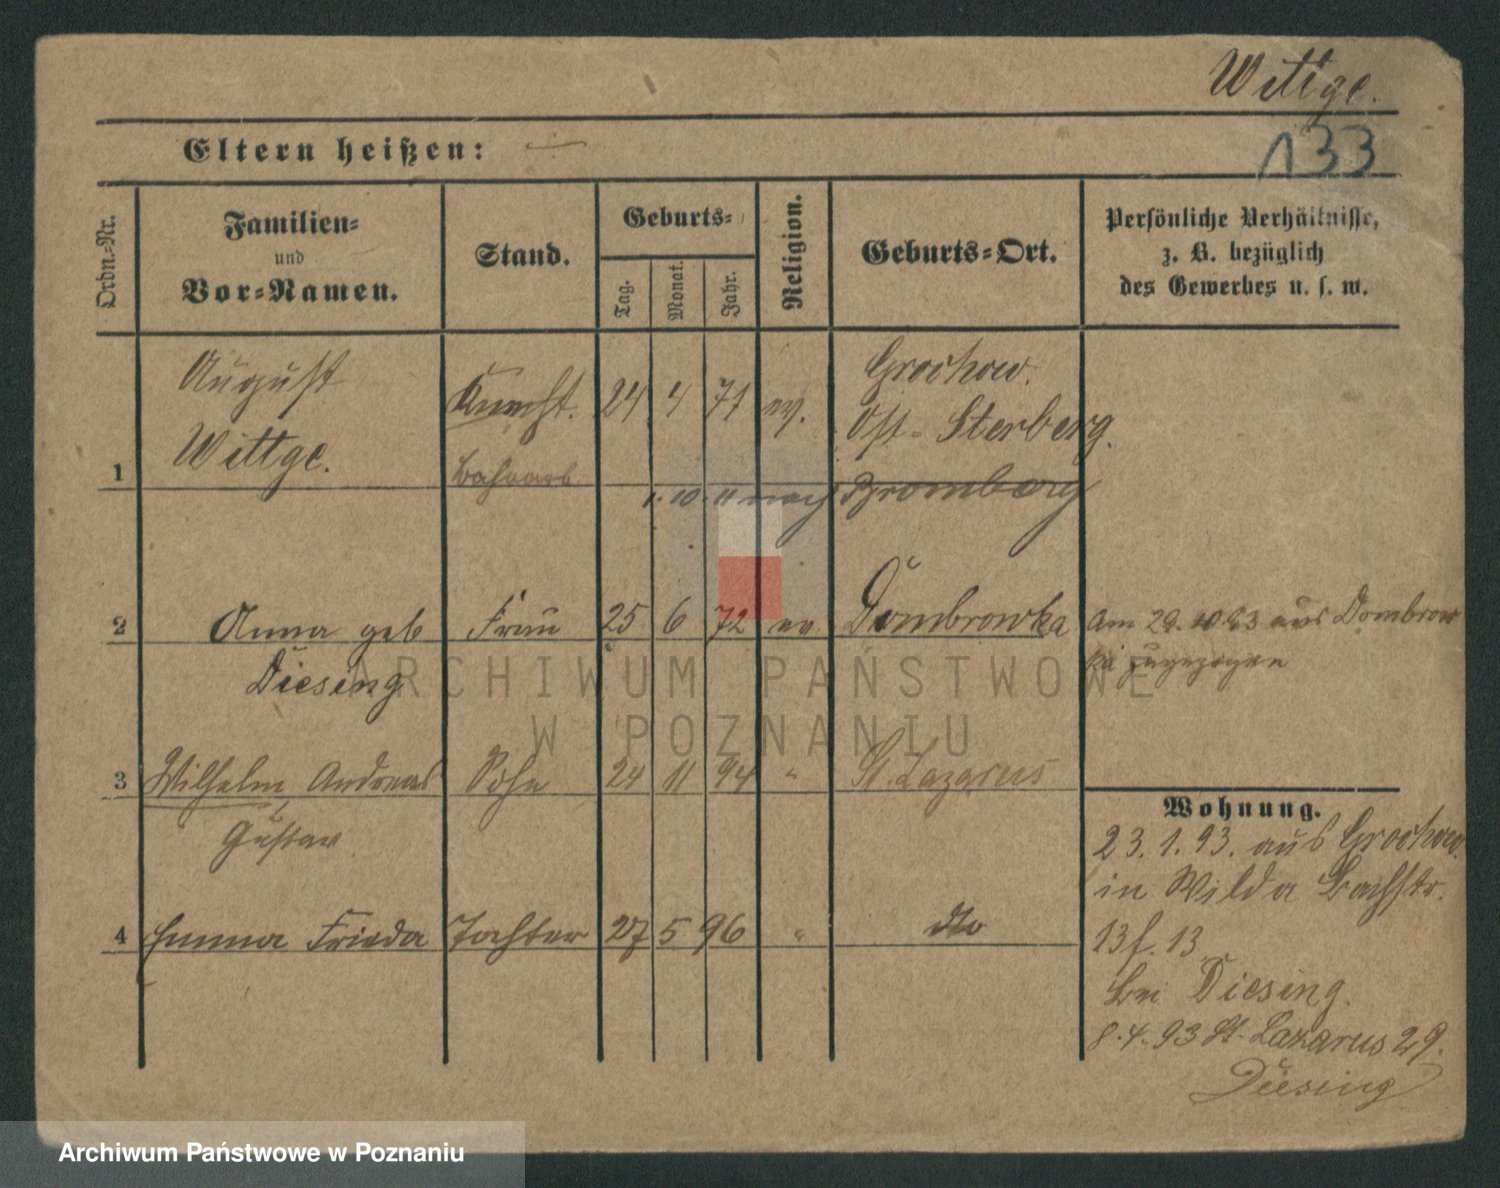 Wittge.
Eltern heißen: —
133
Ordn.-Nr.
Familien-
und
Vor-Namen.
Stand.
Geburts-
Tag.
Monat.
Jahr.
Religion.
Geburts-Ort.
Persönliche Verhältnisse,
z. B. bezüglich
des Gewerbes u. s. w.
1 August Wittge. Knecht. 24 4 71 ev. Grochow.
Ost-Sterberg.
Bahnarb
1. 10. 11 nach Bromberg
2 Anna geb Frau 25 6 72 ev Dombrowka Am 29. 10 93 aus Dombrow
Diesing ka zugezogen
3 Wilhelm Andreas Sohn 24 11 94 " St. Lazarus
Gustav
4 Emma Frieda Tochter 27 5 96 " dto
Wohnung.
23. 1. 93. aus Grochow.
in Wilda Bachstr.
13f. 13
bei Diesing.
8. 4. 93 St. Lazarus 29.
Diesing
ARCHIWUM PAŃSTWOWE
W POZNANIU
Archiwum Państwowe w Poznaniu